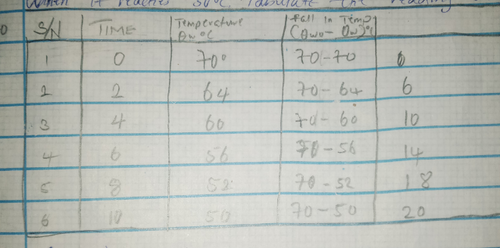 When it reaches 50°C Tabulate the reading
S/N TIME Temperature θw°C Fall in Temp (θwo - θw)°C
1 0 70° 70-70 0
2 2 64 70-64 6
3 4 60 70-60 10
4 6 56 70-56 14
5 8 52 70-52 18
6 10 50 70-50 20